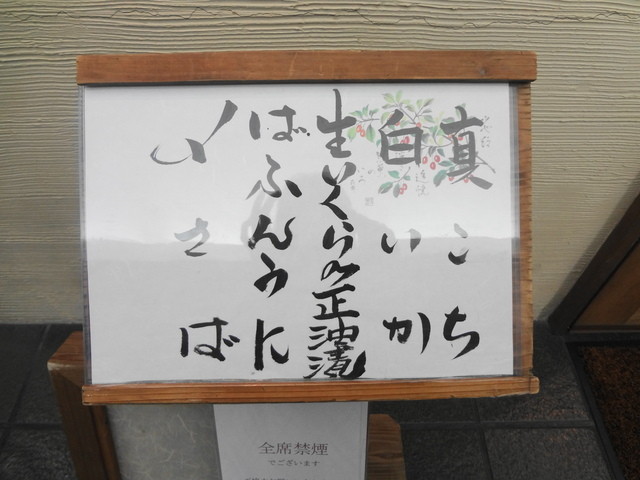 真こち
白いか
生いくらの正油漬
ばふんうに
〆さば
全席禁煙
でございます